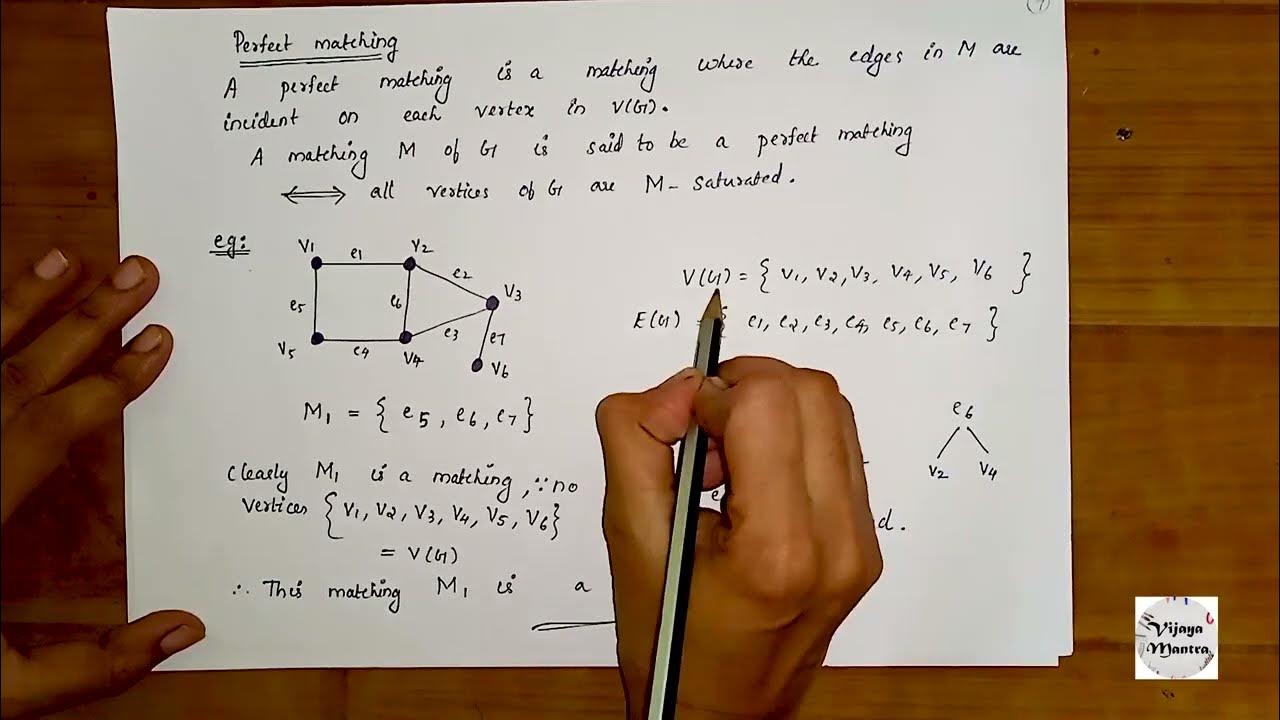 (7)
Perfect matching
A perfect matching is a matching where the edges in M are
incident on each vertex in V(G).
A matching M of G is said to be a perfect matching
⟺ all vertices of G are M-saturated.
eg:
V1 e1 V2
e2
e5 e6 V3
e3
V5 e4 V4 e7
V6
V(G) = { V1, V2, V3, V4, V5, V6 }
E(G) = { e1, e2, e3, e4, e5, e6, e7 }
M1 = { e5, e6, e7 }
e6
V2 V4
Clearly M1 is a matching, ∵ no
e
Vertices { V1, V2, V3, V4, V5, V6 }
d.
= V(G)
∴ This matching M1 is a
Vijaya
Mantra